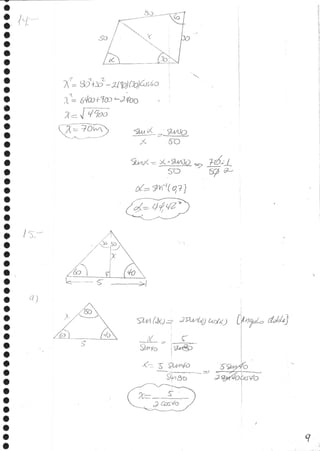 14.-
80
60
50
x
30
α
30
x² = 80² + 30² - 2(80)(30)cos60
x² = 6400 + 900 - 2400
x = √4900
x = 70m
senα / x = sen30 / 50
senα = x·sen30 / 50 ⇒ 70·1 / 50 2
α = sen⁻¹(0,7)
α = 44,42°
15.-
x
60
40
5
a)
80
x
60
40
5
sen(2x) = 2sen(x)cos(x) [Angulo doble]
x / sen40 = 5 / sen80
x = 5 sen40 / sen80 = 5 sen40 / 2 sen40 cos40
x = 5 / 2 cos40
9